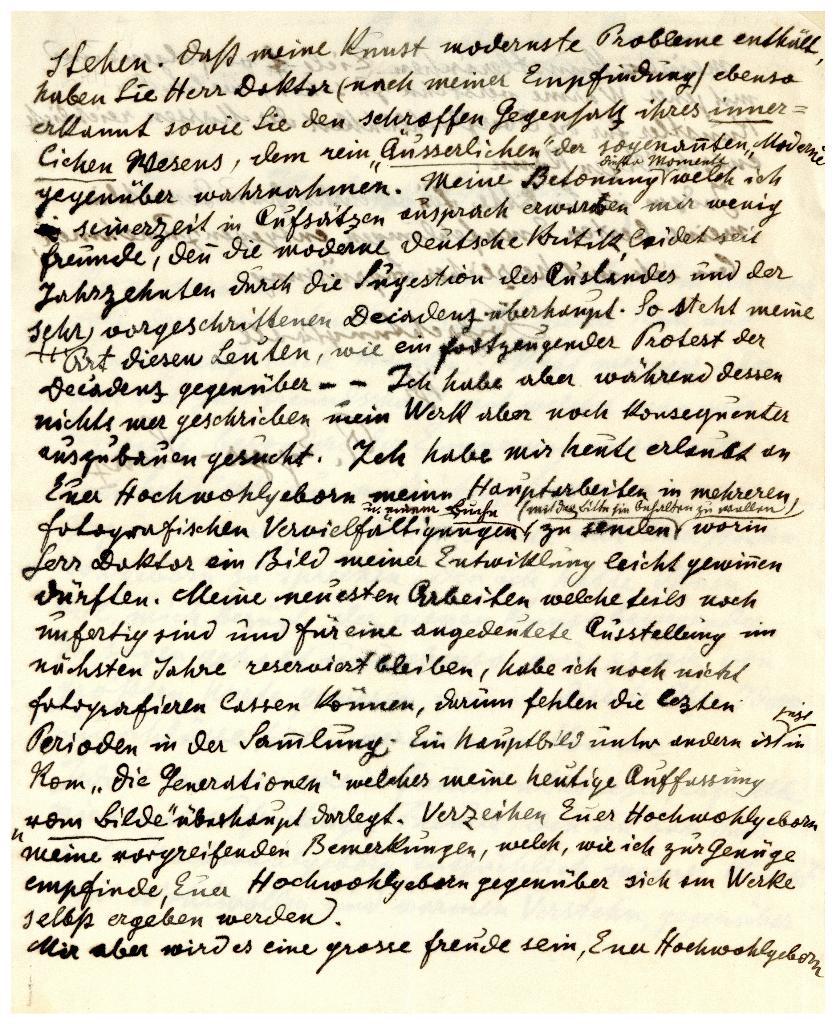 stehen. Daß meine Kunst modernste Probleme enthält,
haben Sie Herr Doktor (nach meiner Empfindung) ebenso
erkannt sowie Sie den schroffen Gegensatz ihres inner=
lichen Wesens, dem rein „Äusserlichen" der sogenannten „Moderne
gegenüber wahrnahmen. Meine Betonung dieser Momente welch ich
seinerzeit in Aufsätzen aussprach erwarben mir wenig
freunde, den die moderne deutsche Kritik leidet seit
Jahrzehnten durch die Sugestion des Auslandes und der
sehr vorgeschrittenen Decadenz überhaupt. So steht meine
Art diesen Leuten, wie ein fortzeugender Protest der
Decadenz gegenüber – – Ich habe aber während dessen
nichts mer geschrieben mein Werk aber noch konsequenter
auszubauen gesucht. Ich habe mir heute erlaubt an
Euer Hochwohlgeborn meine Hauptarbeiten in mehreren
in einem Buche (mit der Bitte ihn behalten zu wollen)
fotografischen Vervielfältigungen, zu senden worin
Herr Doktor ein Bild meiner Entwiklung leicht gewinnen
dürften. Meine neuesten Arbeiten welche teils noch
unfertig sind und für eine angedeutete Ausstellung im
nächsten Jahre reserviert bleiben, habe ich noch nicht
fotografieren lassen können, darum fehlen die lezten
Perioden in der Sammlung. Ein Hauptbild unter andern ist jezt in
Rom „die Generationen" welches meine heutige Auffassung
„vom Bilde" überhaupt darlegt. Verzeihen Euer Hochwohlgeborn
meine vorgreifenden Bemerkungen, welch, wie ich zur Genüge
empfinde, Euer Hochwohlgeborn gegenüber sich am Werke
selbst ergeben werden.
Mir aber wird es eine grosse freude sein, Euer Hochwohlgeborn